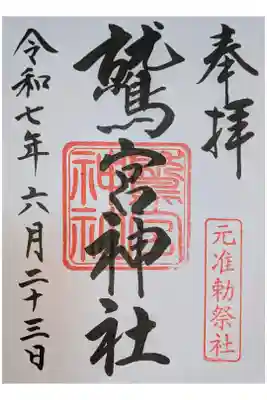 奉拝
元准勅祭社
鷲宮神社
鷲宮神社
令和七年六月二十三日